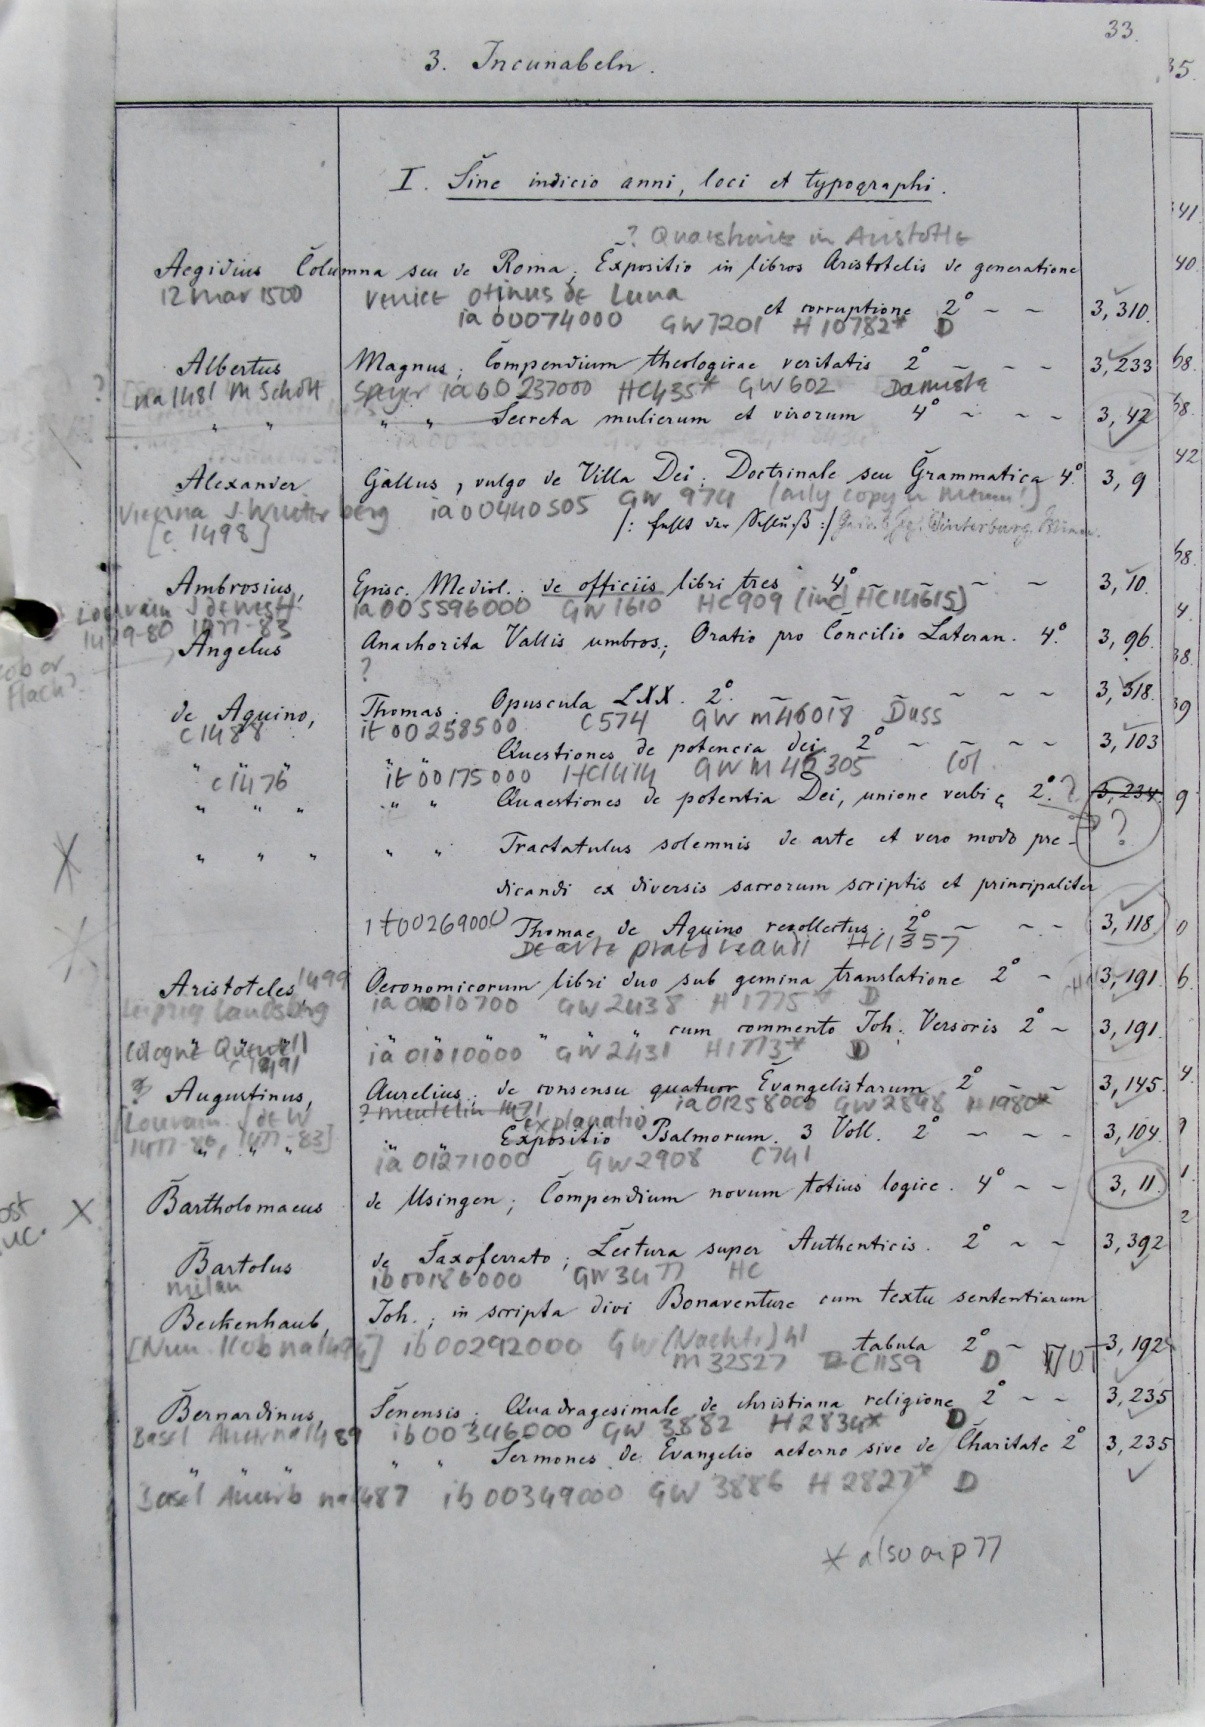 33.
3. Incunabeln.
35.
I. Sine indicio anni, loci et typographi.
? Quaestiones in Aristotle
Aegidius Columna seu de Roma; Expositio in libros Aristotelis de generatione
12 mar 1500 Venice Otinus de Luna
et corruptione 2° ~ ~ 3,310.
ia00074000 GW7201 H10782* D
Albertus Magnus; Compendium theologicae veritatis 2° ~ ~ ~ 3,233
? na1481 M Schott Speyer ia00237000 HC435* GW602
" " " " Secreta mulierum et virorum 4° ~ ~ ~ 3,42
Alexander Gallus, vulgo de Villa Dei; Doctrinale seu Grammatica 4° 3,9
Vienna J. Winterberg ia00440505 GW 974 (only copy in
[c. 1498] /: fehlt der Schluß :/
Ambrosius, Episc. Mediol.. de officiis libri tres 4° ~ ~ 3,10.
Louvain J de West ia005596000 GW1610 HC909 (incl HC14615)
1479-80 1477-83
Angelus Anachorita Vallis umbros.; Oratio pro Concilio Lateran. 4° 3,96.
Flach? ?
de Aquino, Thomas; Opuscula LXX. 2° ~ ~ ~ ~ ~ ~ 3,318.
c1488 it00258500 C574 GW M46018 Duss
" " " " Questiones de potencia dei 2° ~ ~ ~ ~ 3,103
c1476 it00175000 HC1414 GW M46305 Col
" " " " " Quaestiones de potentia Dei, unione verbi c 2° ? 3,234.
?
" " " " " Tractatulus solemnis de arte et vero modo pre-
dicandi ex diversis sacrorum scriptis et principaliter
it00269000 Thomae de Aquino recollectus. 2° ~ ~ ~ 3,118
De arte praedicandi HC1357
Aristoteles, 1499 Oeconomicorum libri duo sub gemina translatione 2° ~ 3,191
Leipzig Landsberg ia01010700 GW 2438 H 1775* D
" " " " " cum commento Joh. Versoris 2° ~ 3,191.
Cologne Quentell ia01010000 GW 2431 H1773* D
c1491
? Augustinus, Aurelius; de consensu quatuor Evangelistarum 2° ~ ~ 3,145.
? Mentelin 1471 ia01258000 GW2898 H1980*
[Louvain J de W explanatio
1477-86, 1477-83] " " Expositio Psalmorum. 3 Voll. 2° ~ ~ ~ 3,104.
ia01271000 GW2908 C741
X Bartholomaeus de Usingen; Compendium novum totius logice. 4° ~ ~ 3,11.
Bartolus de Saxoferrato; Lectura super Authenticis. 2° ~ ~ 3,392
Milan ib00186000 GW3477 HC
Beckenhaub, Joh.; in scripta divi Bonaventure cum textu sententiarum
[Nurn. Kob na ib00292000 GW (Nachtr.) 41 tabula 2° ~ NOT 3,192
M32527 C1159 D
Bernardinus, Senensis; Quadragesimale de christiana religione 2° ~ ~ 3,235
Basel Amer na1489 ib00346000 GW 3882 H2834* D
" " " " " Sermones de Evangelio aeterno sive de Charitate 2° 3,235
Basel Amerb na1487 ib00349000 GW 3886 H 2827* D
* also on p77